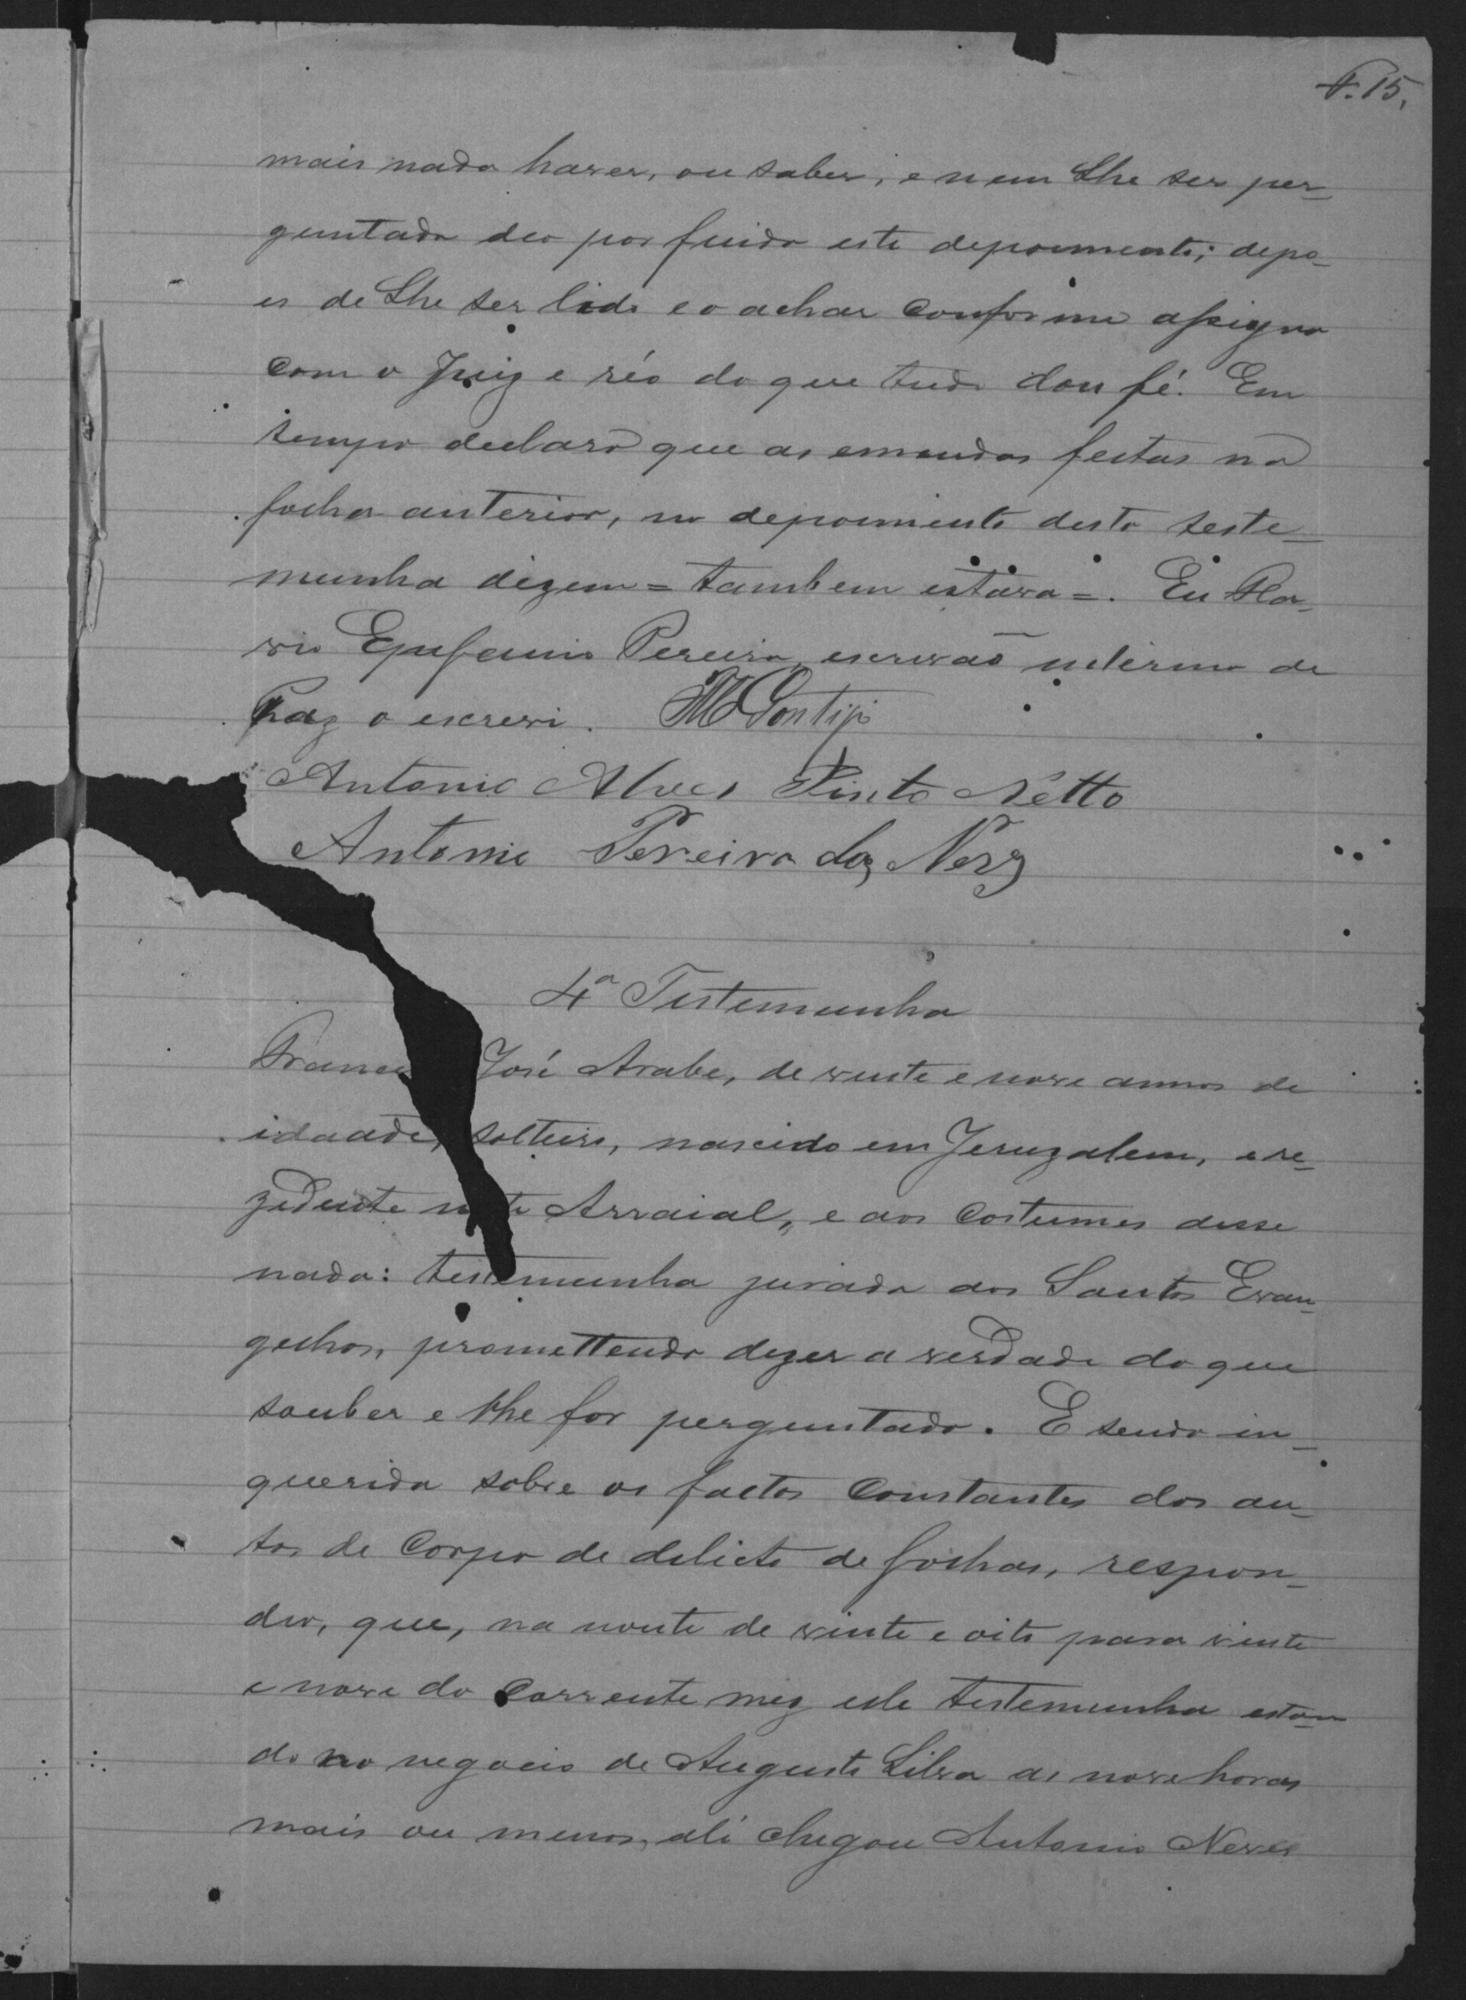 f. 15.
mais nada haver, ou saber, e nem lhe ser per-
guntado deo por findo este depoimento; depo-
is de lhe ser lido e o achar conforme assigna
com o Juiz e réo do que tudo dou fé. Em
tempo declaro que as emendas feitas na
folha anterior, no depoimento desta teste-
munha dizem = tambem estava =. Eu Fla-
vio Epifanio Pereira, escrivão interino de
Paz o escrevi. Gontijo
Antonio Alves Pinto Netto
Antonio Pereira das Neves
4ª Testemunha
José Arabe, de vinte e nove annos de
idaade, solteiro, nascido em Jeruzalem, e re-
zidente neste Arraial, e aos costumes disse
nada: testemunha jurada aos Santos Evan-
gelhos, promettendo dizer a verdade do que
souber e lhe for perguntado. E sendo in-
querida sobre os factos constantes dos au-
tos de corpo de delicto de folhas, respon-
deo, que, na noute de vinte e oito para vinte
e nove do corrente mez elle testemunha estan-
do no negocio de Augusto Silva as nove horas
mais ou menos, ali chegou Antonio Neves